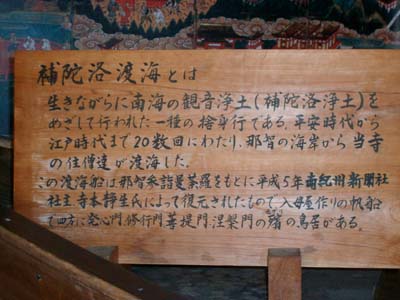 補陀洛渡海とは
生きながらに南海の観音浄土(補陀洛浄土)を
めざして行われた一種の捨身行である。平安時代から
江戸時代まで20数回にわたり、那智の海岸から当寺
の住僧達が渡海した。
この渡海船は那智参詣曼荼羅をもとに平成5年南紀州新聞社
社主寺本静生氏によって復元されたもので、入母屋作りの帆船
で四方に発心門、修行門、菩提門、涅槃門の殯の鳥居がある。